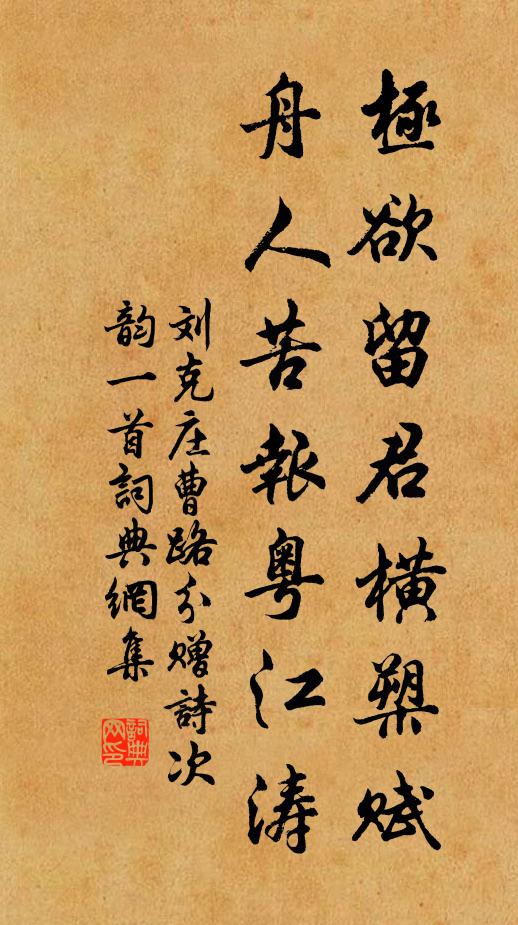 極欲留君橫槊賦
舟人苦報粵江濤
刘克庄曹路分赠詩次
韵一首詞典網集
詞典
网印